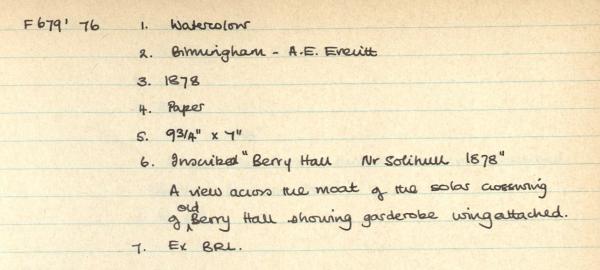 F679' 76 1. Watercolour
2. Birmingham - A.E. Everitt
3. 1878
4. Paper
5. 9 3/4" x 7"
6. Inscribed "Berry Hall Nr Solihull 1878"
A view across the moat of the solar crosswing
of old Berry Hall showing garderobe wing attached.
7. Ex BRL.